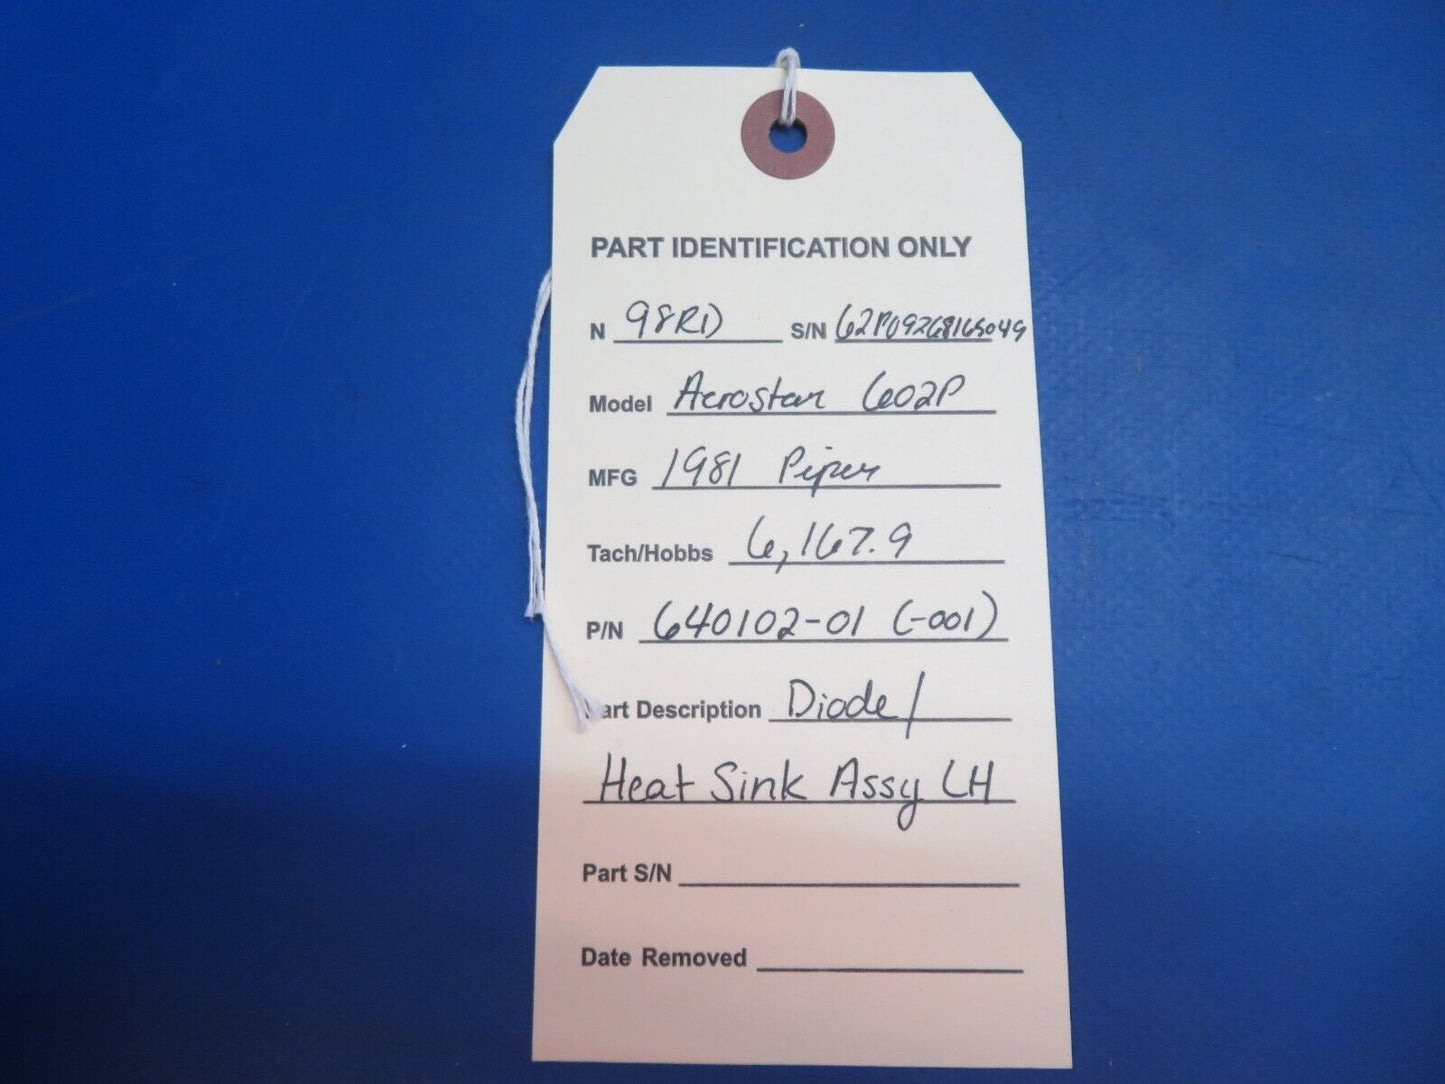 PART IDENTIFICATION ONLY
N 98RD S/N 62P09268165049
Model Aerostar 602P
MFG 1981 Piper
Tach/Hobbs 6,167.9
P/N 640102-01 (-001)
art Description Diode/
Heat Sink Assy LH
Part S/N
Date Removed